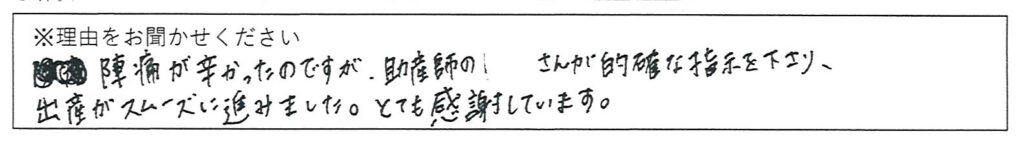 ※理由をお聞かせください
陣痛が辛かったのですが、助産師の さんが的確な指示を下さり、
出産がスムーズに進みました。とても感謝しています。